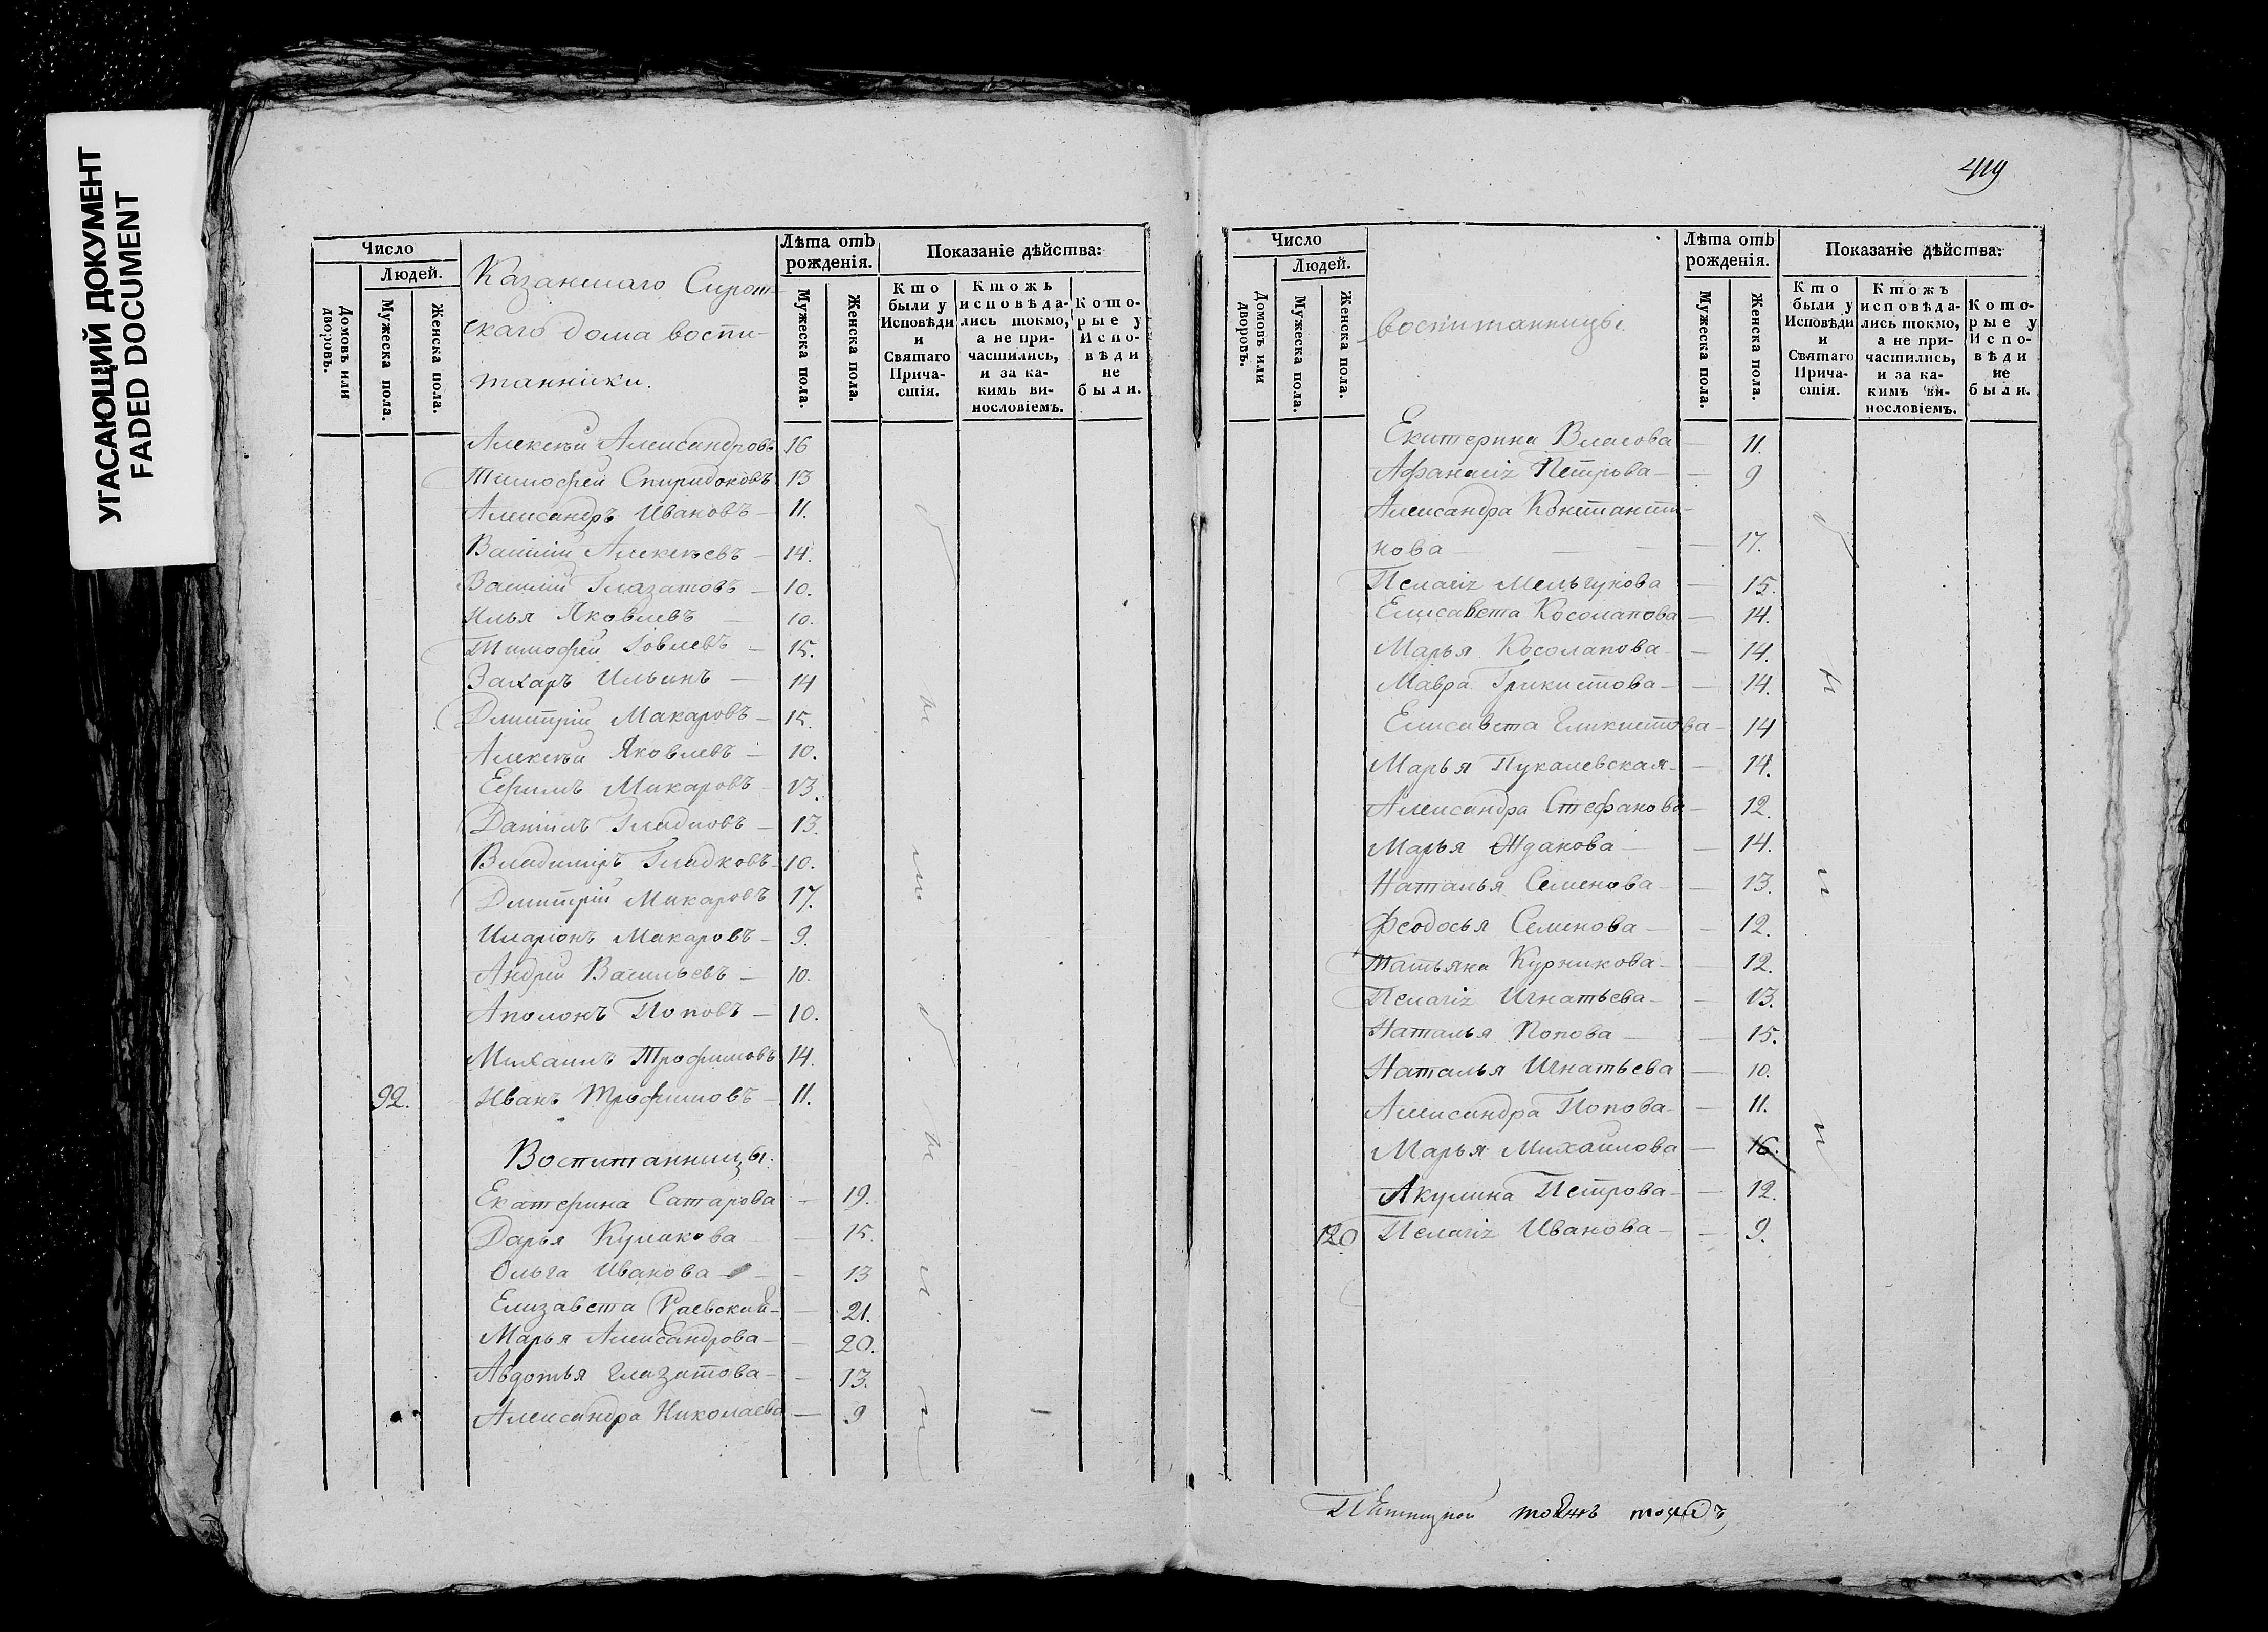 УГАСАЮЩИЙ ДОКУМЕНТ
FADED DOCUMENT
Число
Людей.
Домовъ или дворовъ.
Мужеска пола.
Женска пола.
Казанскаго Сирот-
скаго дома воспи-
танники.
Лѣта отъ
рожденія.
Мужеска пола.
Женска пола.
Показаніе дѣйства:
Кто
были у
Исповѣди
и
Святаго
Прича-
стія.
Ктожъ
исповѣда-
лись токмо,
а не при-
частились,
и за ка-
кимъ ви-
нословіемъ.
Кото-
рые у
Испо-
вѣди
не
были.
Алексѣй Александровъ 16
Тимофей Спиридоновъ 13
Александръ Ивановъ — 11.
Василій Алексѣевъ — 14.
Василій Глазатовъ — 10.
Илья Яковлевъ — 10.
Тимофей Іовлевъ — 15.
Захаръ Ильинъ — 14
Дмитрій Макаровъ — 15.
Алексѣй Яковлевъ — 10.
Ефимъ Макаровъ 13.
Даніилъ Гладковъ — 13.
Владиміръ Гладковъ 10.
Дмитрій Макаровъ 17.
Иларіонъ Макаровъ — 9.
Андрей Васильевъ — 10.
Аполонъ Поповъ — 10.
Михаилъ Трофимовъ 14.
92. Иванъ Трофимовъ — 11.
Воспитанницы.
Екатерина Сатарова — 19.
Дарья Куликова — 15.
Ольга Иванова — 13
Елизавета Раевская — 21.
Марья Александрова — 20.
Авдотья Глазатова — 13.
Александра Николаева — 9
419
Число
Людей.
Домовъ или дворовъ.
Мужеска пола.
Женска пола.
воспитанницы.
Лѣта отъ
рожденія.
Мужеска пола.
Женска пола.
Показаніе дѣйства:
Кто
были у
Исповѣди
и
Святаго
Прича-
стія.
Ктожъ
исповѣда-
лись токмо,
а не при-
частились,
и за ка-
кимъ ви-
нословіемъ.
Кото-
рые у
Испо-
вѣди
не
были.
Екатерина Власова — 11.
Афанасія Петрова — 9
Александра Констант-
нова — 17.
Пелагія Мельгунова — 15.
Елисавета Косолапова — 14.
Марья Косолапова — 14.
Мавра — 14.
Елисавета — 14
Марья Пукалевская — 14.
Александра Стефанова — 12.
Марья Жданова — 14.
Наталья Семенова — 13.
Феодосья Семенова — 12.
Татьяна Курникова — 12.
Пелагія Игнатьева — 13.
Наталья Попова — 15.
Наталья Игнатьева — 10.
Александра Попова — 11.
Марья Михаилова — 16.
Акулина Петрова — 12.
120 Пелагія Иванова — 9.